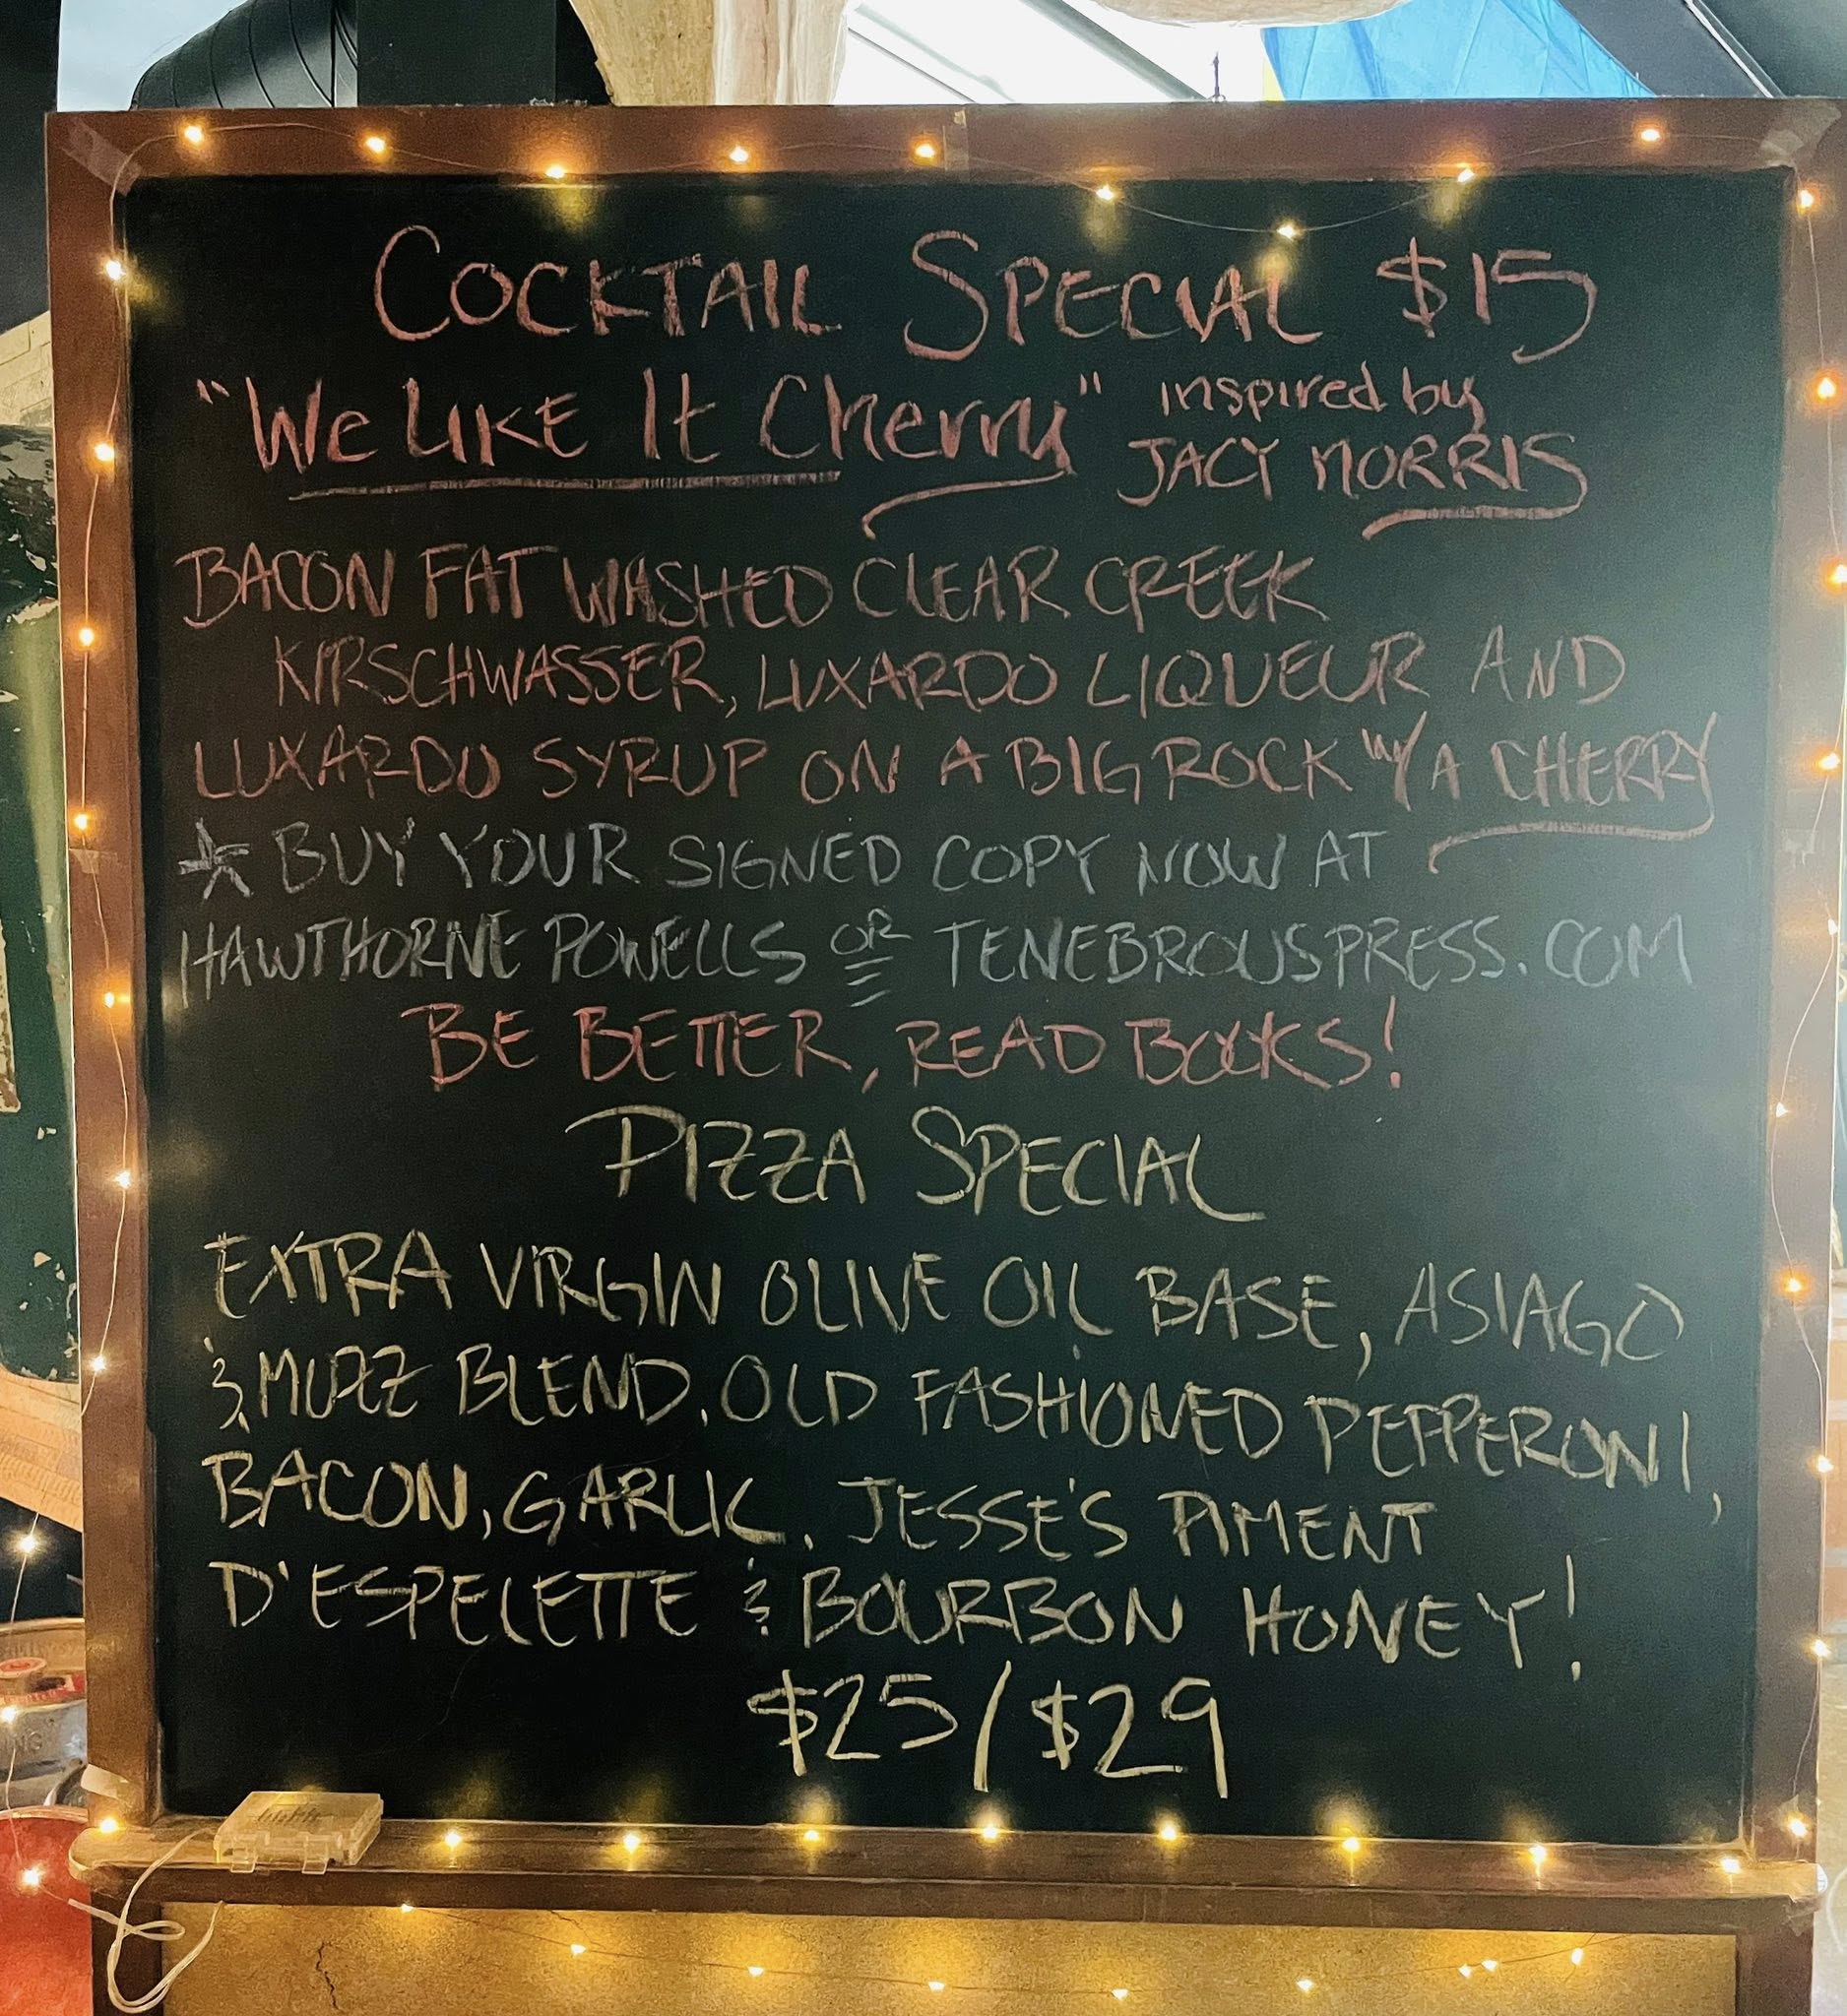 COCKTAIL SPECIAL $15
"We LIKE It Cherry" inspired by
JACY MORRIS
BACON FAT WASHED CLEAR CREEK
KIRSCHWASSER, LUXARDO LIQUEUR AND
LUXARDO SYRUP ON A BIG ROCK W/ A CHERRY
* BUY YOUR SIGNED COPY NOW AT
HAWTHORNE POWELLS OR TENEBROUSPRESS.COM
BE BETTER, READ BOOKS!
PIZZA SPECIAL
EXTRA VIRGIN OLIVE OIL BASE, ASIAGO
& MOZZ BLEND, OLD FASHIONED PEPPERONI,
BACON, GARLIC, JESSE'S PIMENT
D'ESPELETTE & BOURBON HONEY!
$25/$29